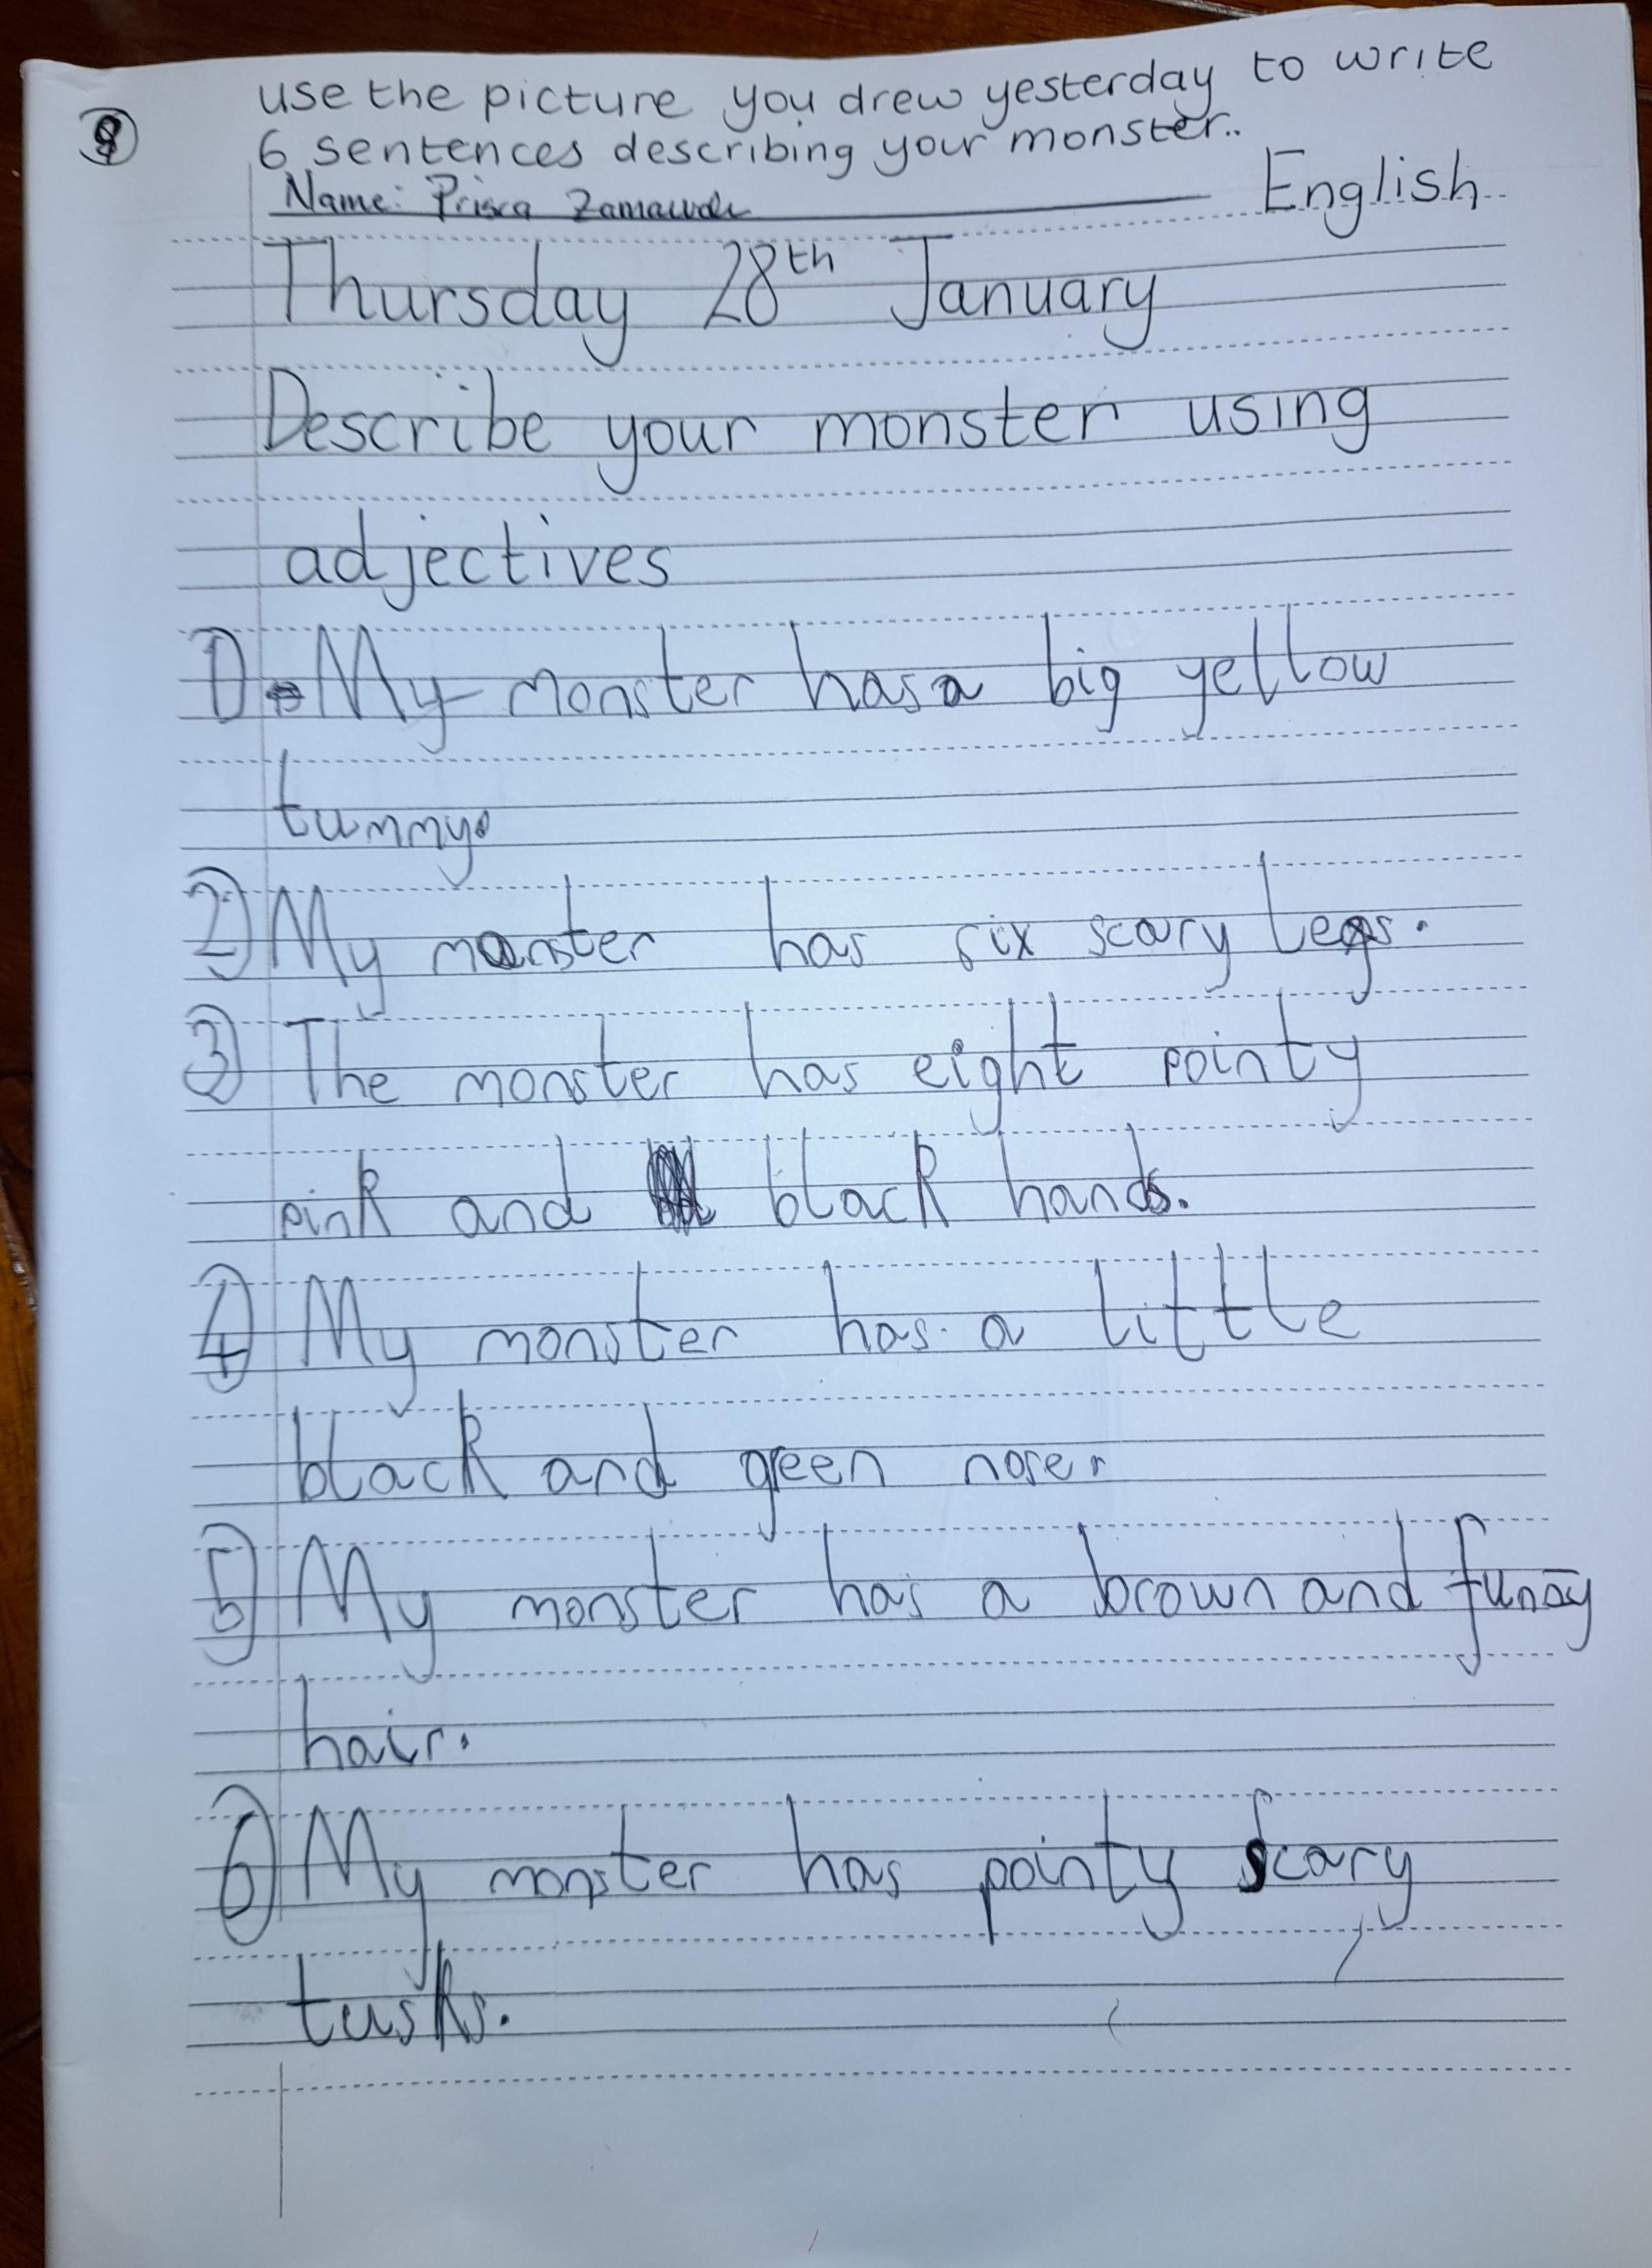 use the picture you drew yesterday to write
6 sentences describing your monster..
Name: Prisca
English
Thursday 28th January
Describe your monster using
adjectives
1) My monster has a big yellow
tummy.
2) My monster has six scary legs.
3) The monster has eight pointy
pink and black hands.
4) My monster has a little
black and green nose.
5) My monster has a brown and funny
hair.
6) My monster has pointy scary
tusks.